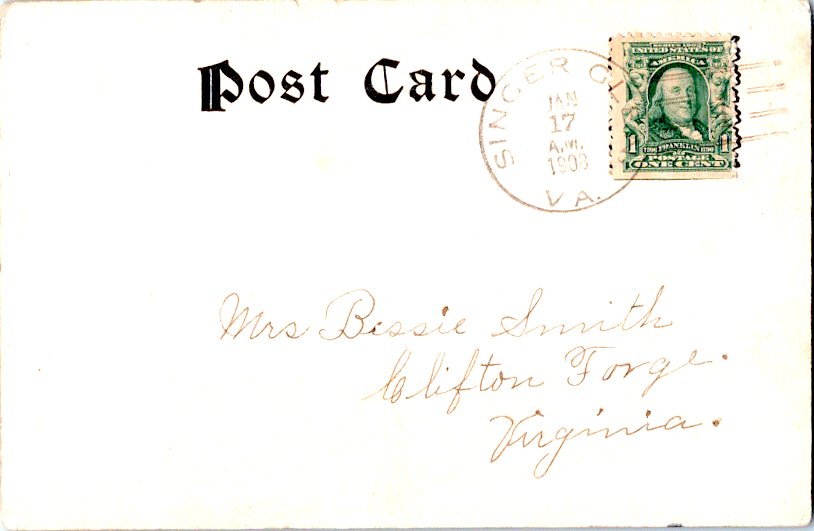 Post Card
SINGER GL
JAN
17
A.M.
1908
VA.
SERIES 1902
UNITED STATES OF
AMERICA
1706 FRANKLIN 1790
1 1
POSTAGE
ONE CENT
Mrs Bessie Smith
Clifton Forge.
Virginia.